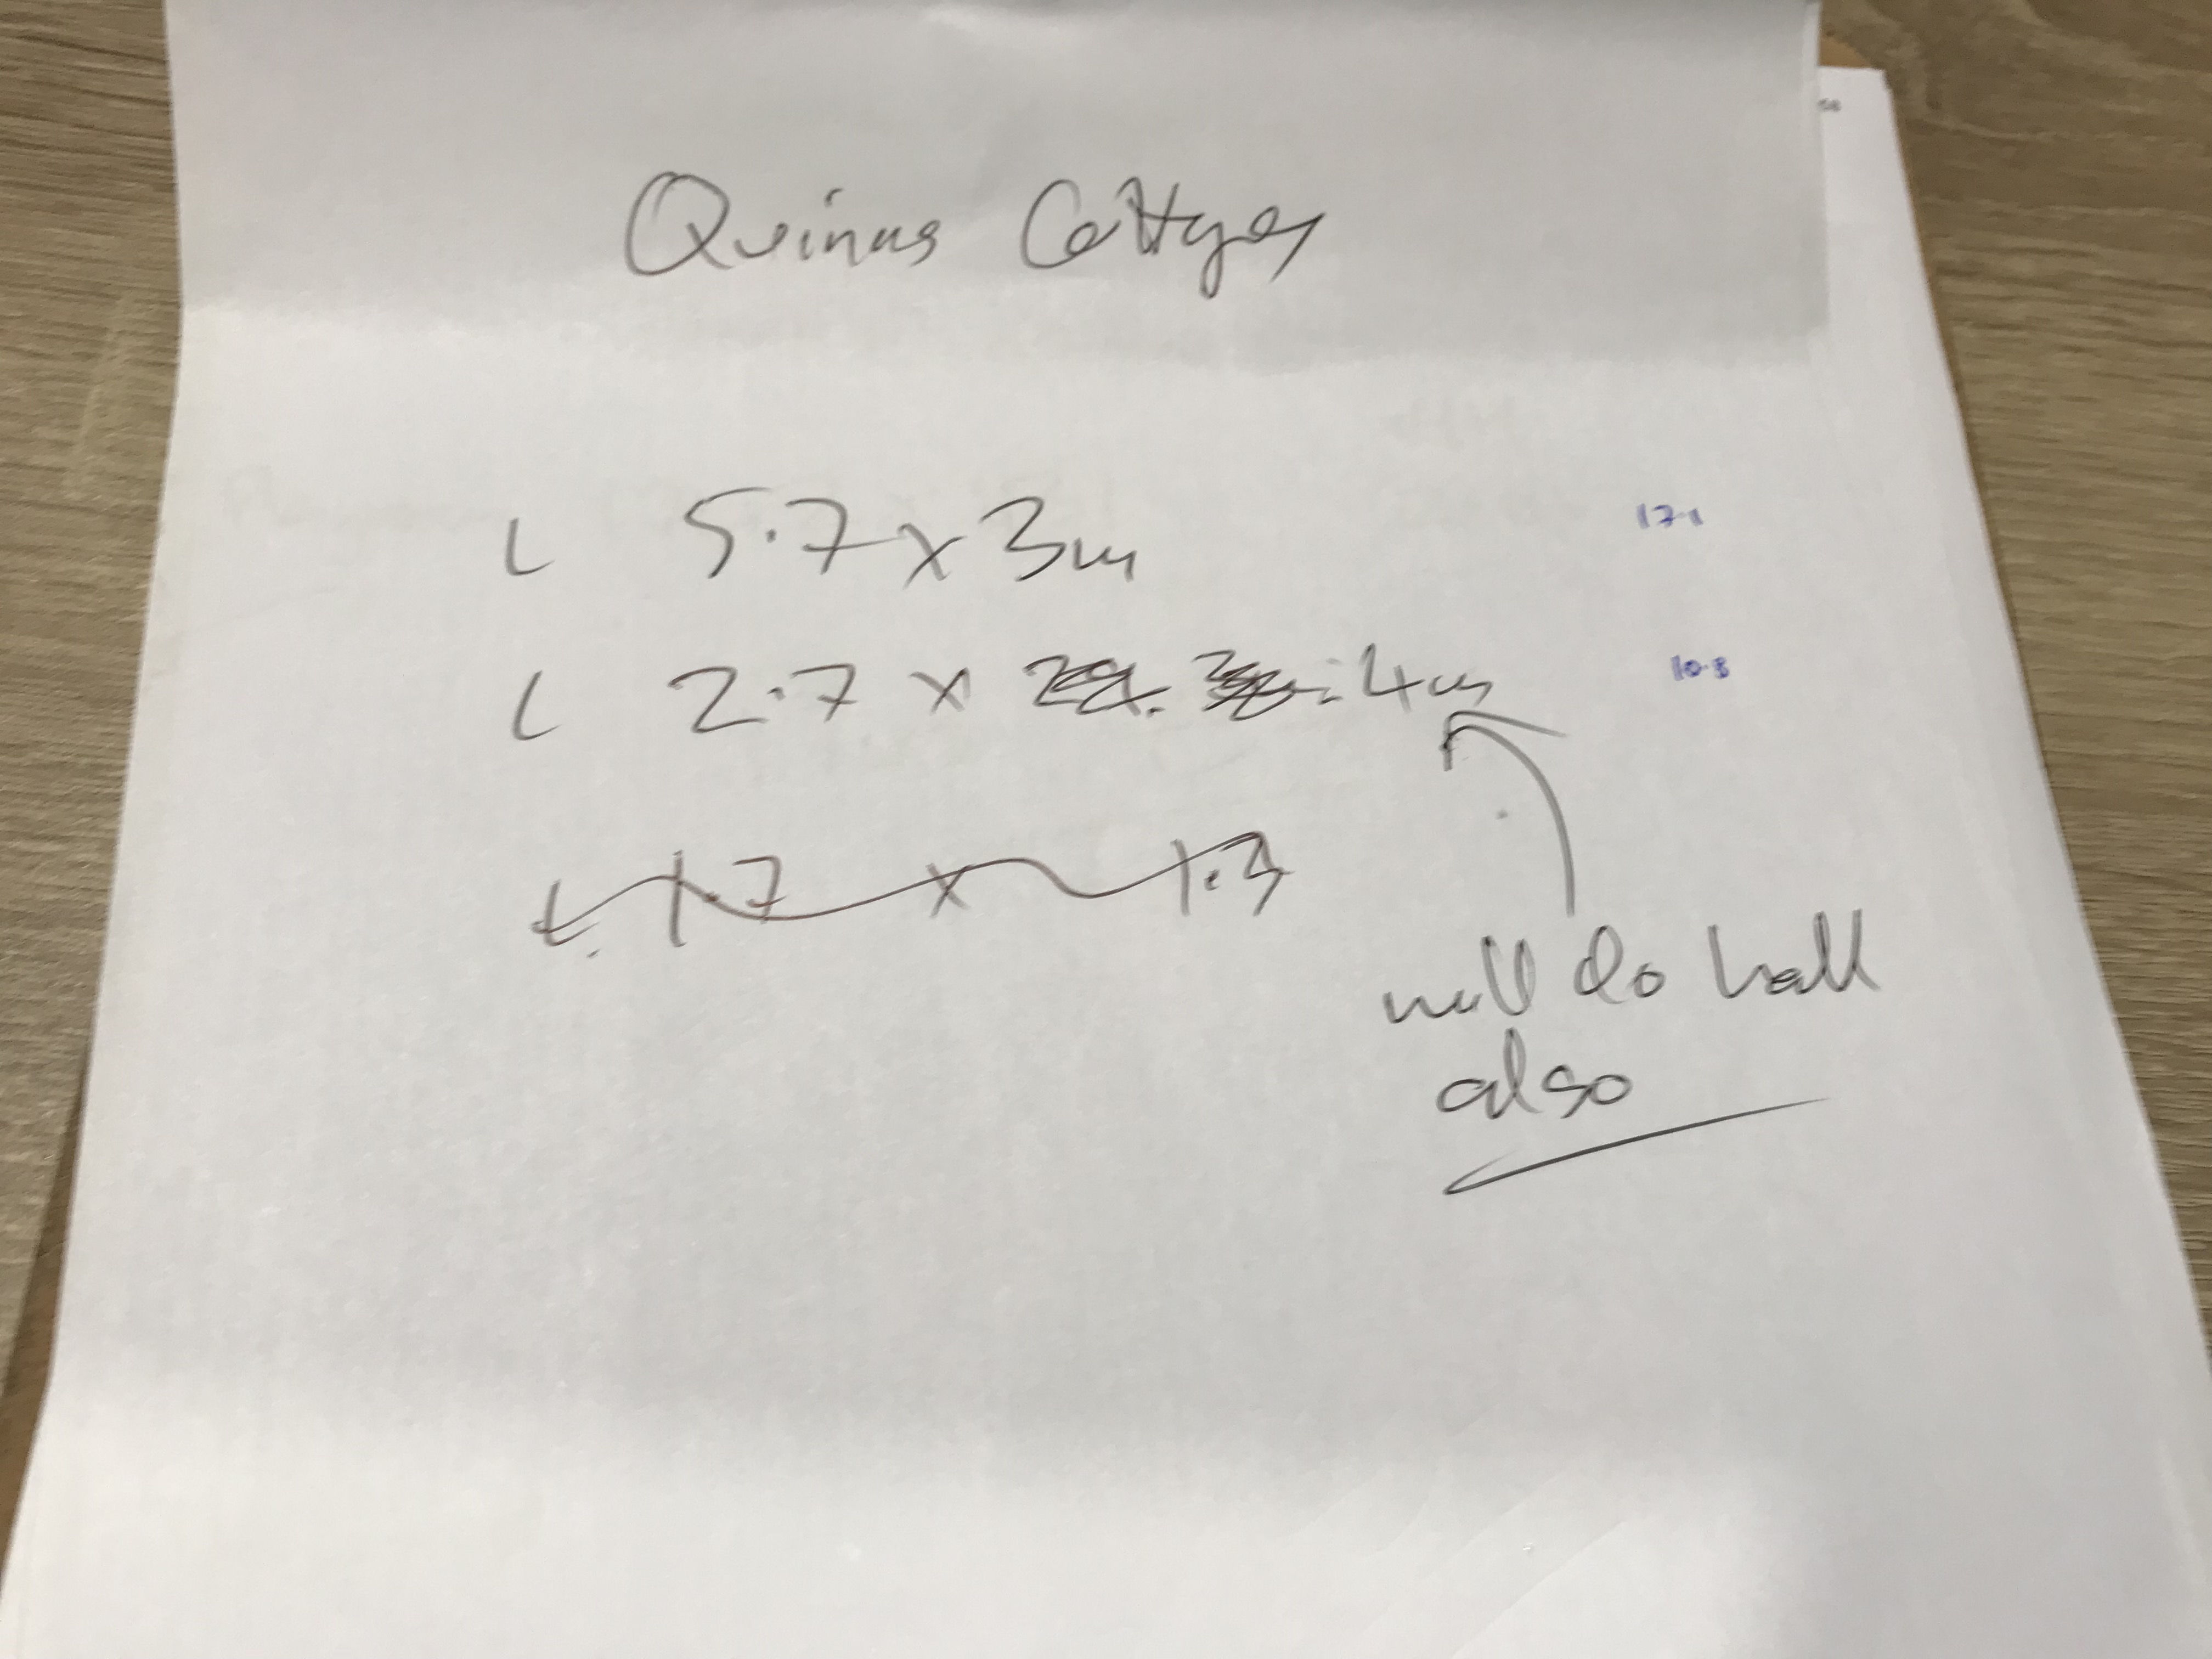 Quinns Cottages
L 5.7 x 3m 17.1
L 2.7 x 4m 10.8
L 1.7 x 1.3
will do hall
also